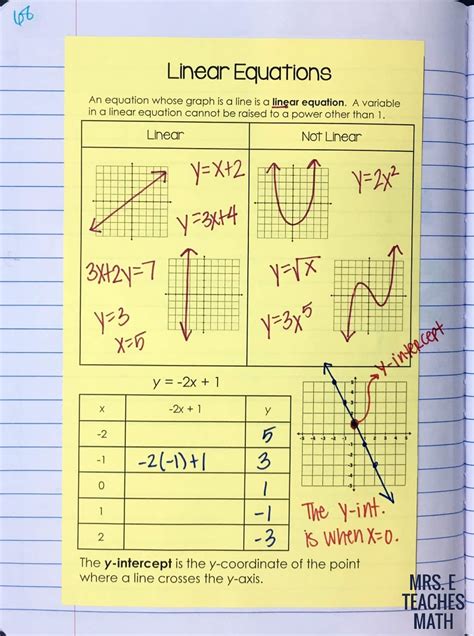 68
Linear Equations
An equation whose graph is a line is a linear equation. A variable
in a linear equation cannot be raised to a power other than 1.
Linear
Not Linear
y=x+2
y=3x+4
3x+2y=7
y=3
x=5
y=2x²
y=√x
y=3x⁵
y = -2x + 1
x -2x + 1 y
-2 5
-1 -2(-1)+1 3
0 1
1 -1
2 -3
y-intercept
-5 -4 -3 -2 -1 1 2 3 4 5
The y-int.
is when x=0.
The y-intercept is the y-coordinate of the point
where a line crosses the y-axis.
MRS. E
TEACHES
MATH